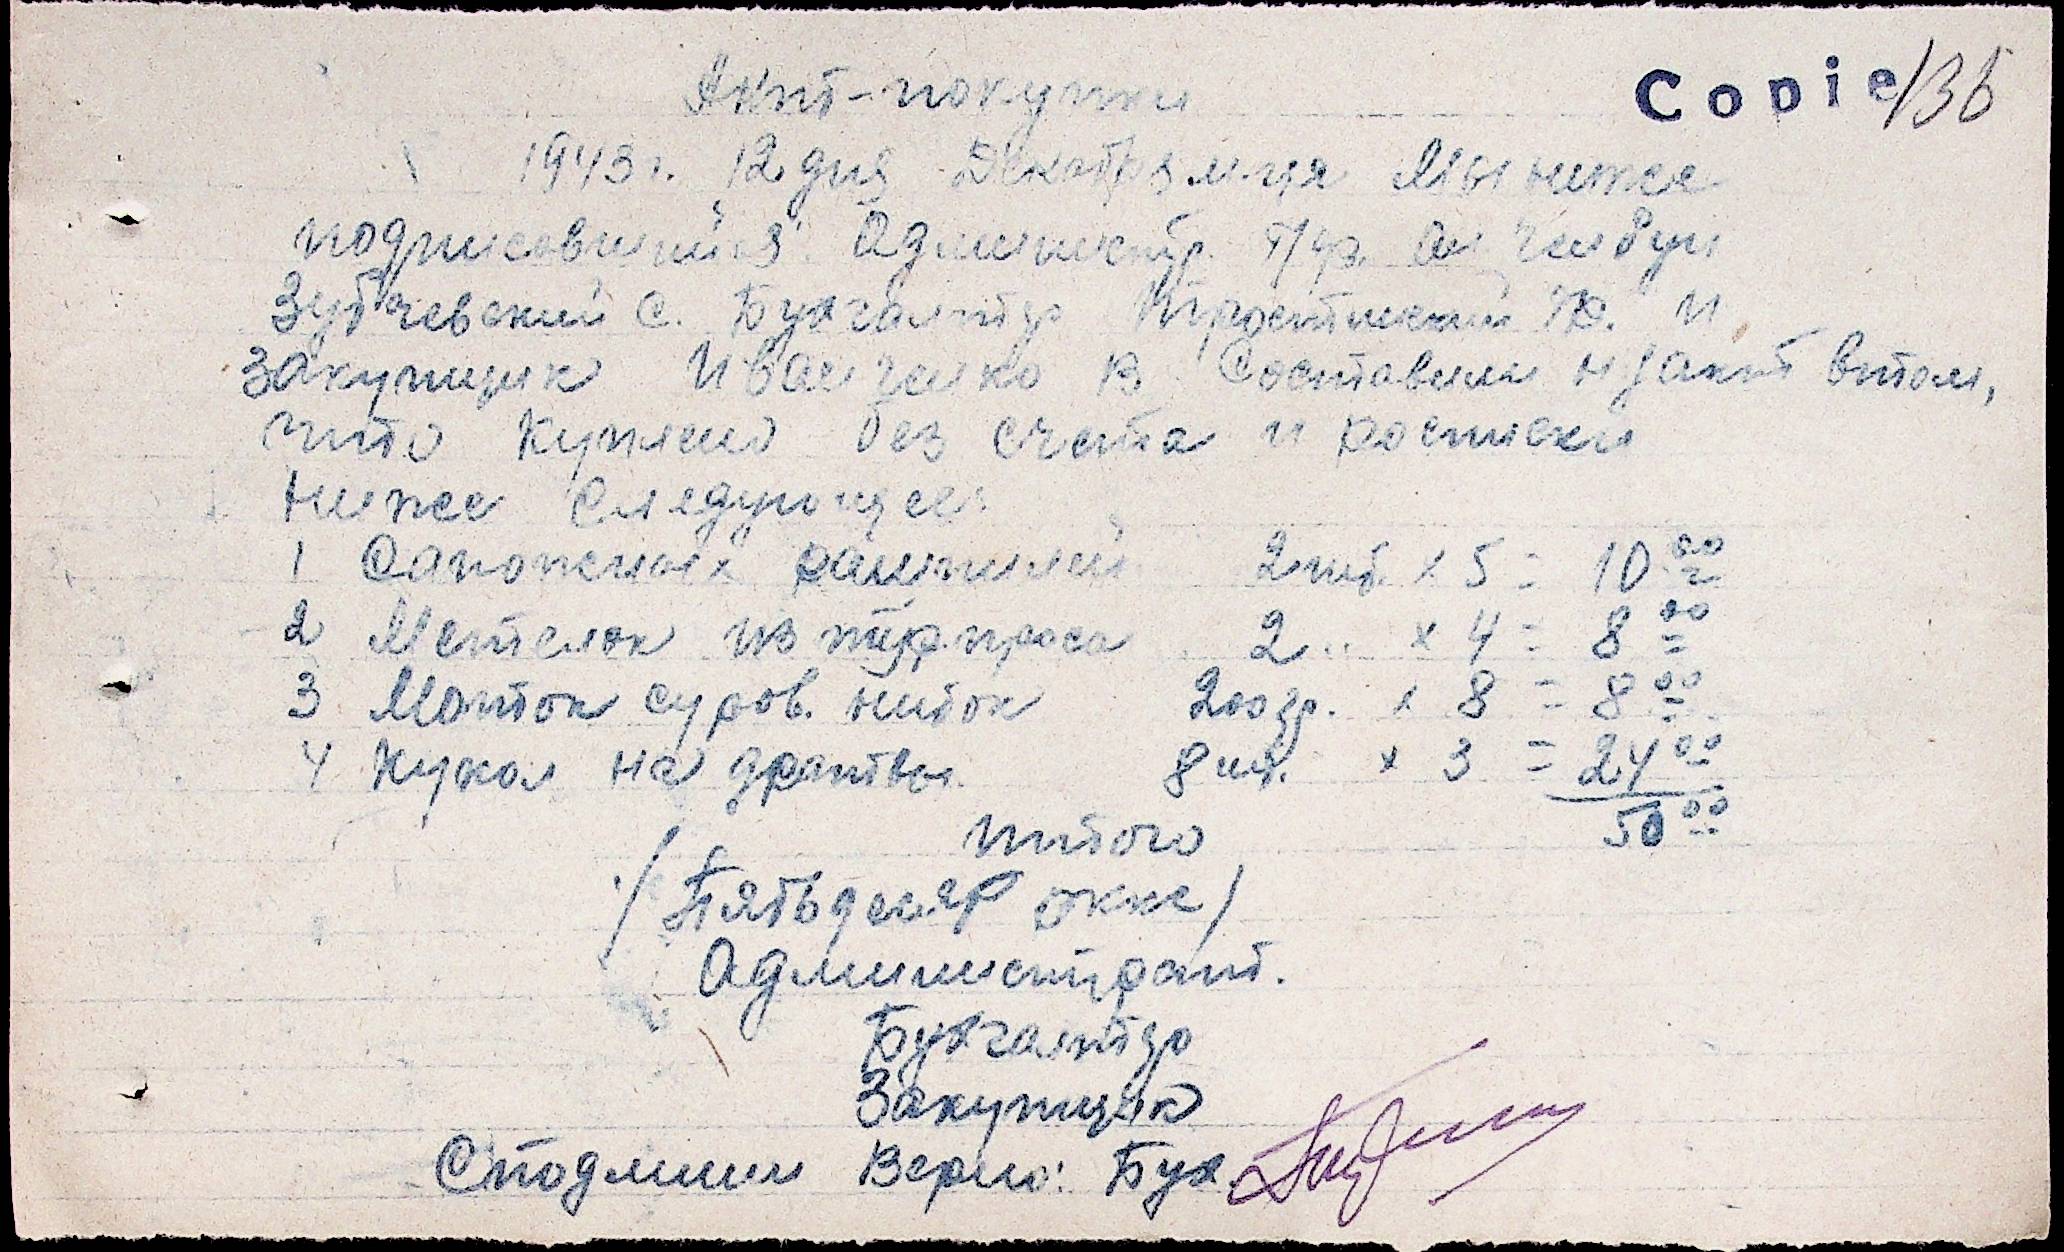 Copie 136
Акт-покупки
1943 г. 12 дня Декабря м-ця Мы ниже
подписавшийся Администр.
Зубчевский С. Бухгалтер И
закупщик Иванченко В Составили н/акт втом,
что Куплено без счета и росписки
ниже следующее:
1 Сапожных рашпилей 2 шт. х 5 = 10 00
2 Метелок из 2 " х 4 = 8 00
3 Моток суров. ниток 200 гр. х 8 = 8 00
4 Кукол на дратвы 8 шт. х 3 = 24 00
50 00
Итого
/ Пятьдесят окке /
Администрат.
Бухгалтер
Закупщик
Сподлинным Верно: Бух.